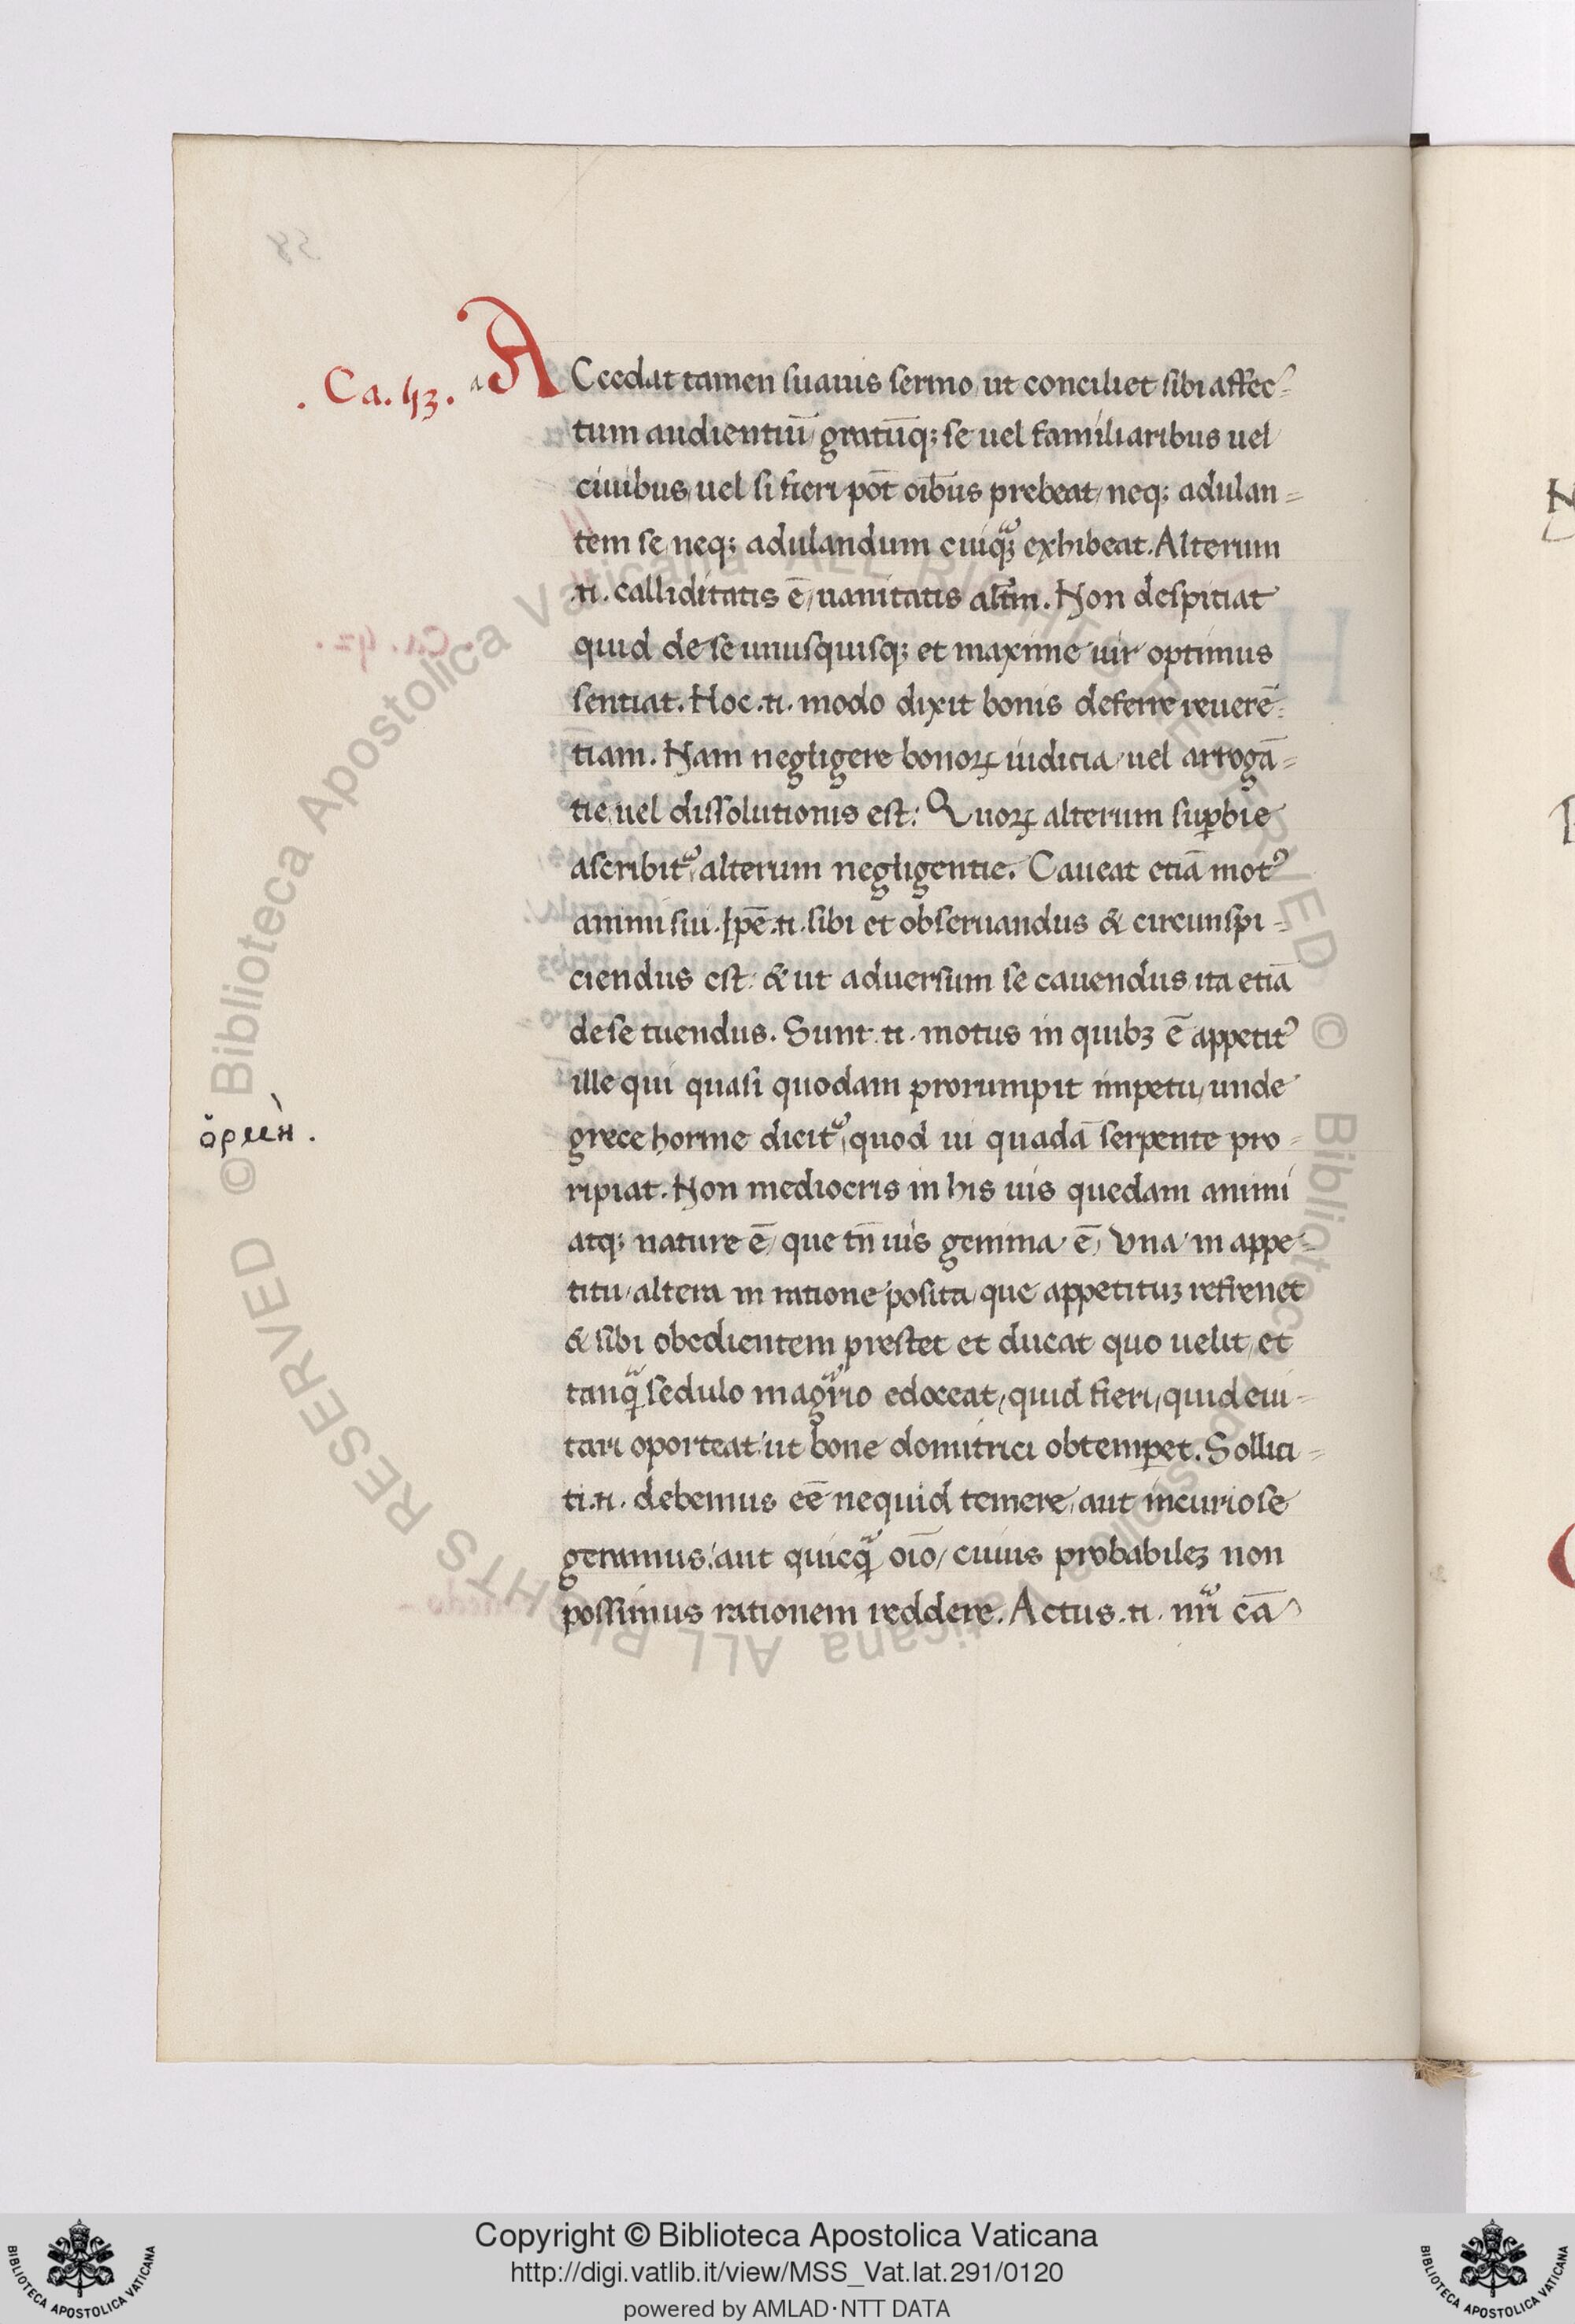 . Ca. 43. a ACcedat tamen suauis sermo, ut conciliet sibi affec-
tum audientiū gratūq; se uel familiaribus uel
ciuibus, uel si fieri pōt oībus prebeat, neq; adulan-
tem se, neq; adulandum cuiq; exhibeat. Alterum
.n. calliditatis ē, uanitatis altm̄. Non despitiat
quid de se unusquisq; et maxime uir optimus
sentiat. Hoc .n. modo dixit bonis deferre reuerē-
tiam. Nam negligere bonoꝝ iudicia, uel arrogā-
tie, uel dissolutionis est: Quoꝝ alterum suꝑbie
ascribit᷑, alterum negligentie. Caueat etiā motꝰ
animi sui. Ip̄e .n. sibi et obseruandus & circunspi-
ciendus est: & ut aduersum se cauendus, ita etiā
de se tuendus. Sunt .n. motus in quibꝫ ē appetitꝰ
ille qui quasi quodam prorumpit impetu, unde
ὁρμὴ.
grece horme dicit᷑, quod ui quadā serpente pro-
ripiat. Non mediocris in his uis quedam animi
atq; nature ē, que tn̄ uis gemina ē, Vna in appe-
titu, altera in ratione posita, que appetituꝫ refrenet
& sibi obedientem prestet et ducat quo uelit, et
tanꝙ sedulo magr̄io edoceat, quid fieri, quid eui-
tari oporteat: ut bone domitrici obtemꝑet. Sollici-
ti .n. debemus eē nequid temere, aut incuriose
geramus: aut quicꝙ oīo, cuius probabileꝫ non
possimus rationem reddere. Actus .n. nr̄i cā
Copyright © Biblioteca Apostolica Vaticana
http://digi.vatlib.it/view/MSS_Vat.lat.291/0120
powered by AMLAD·NTT DATA